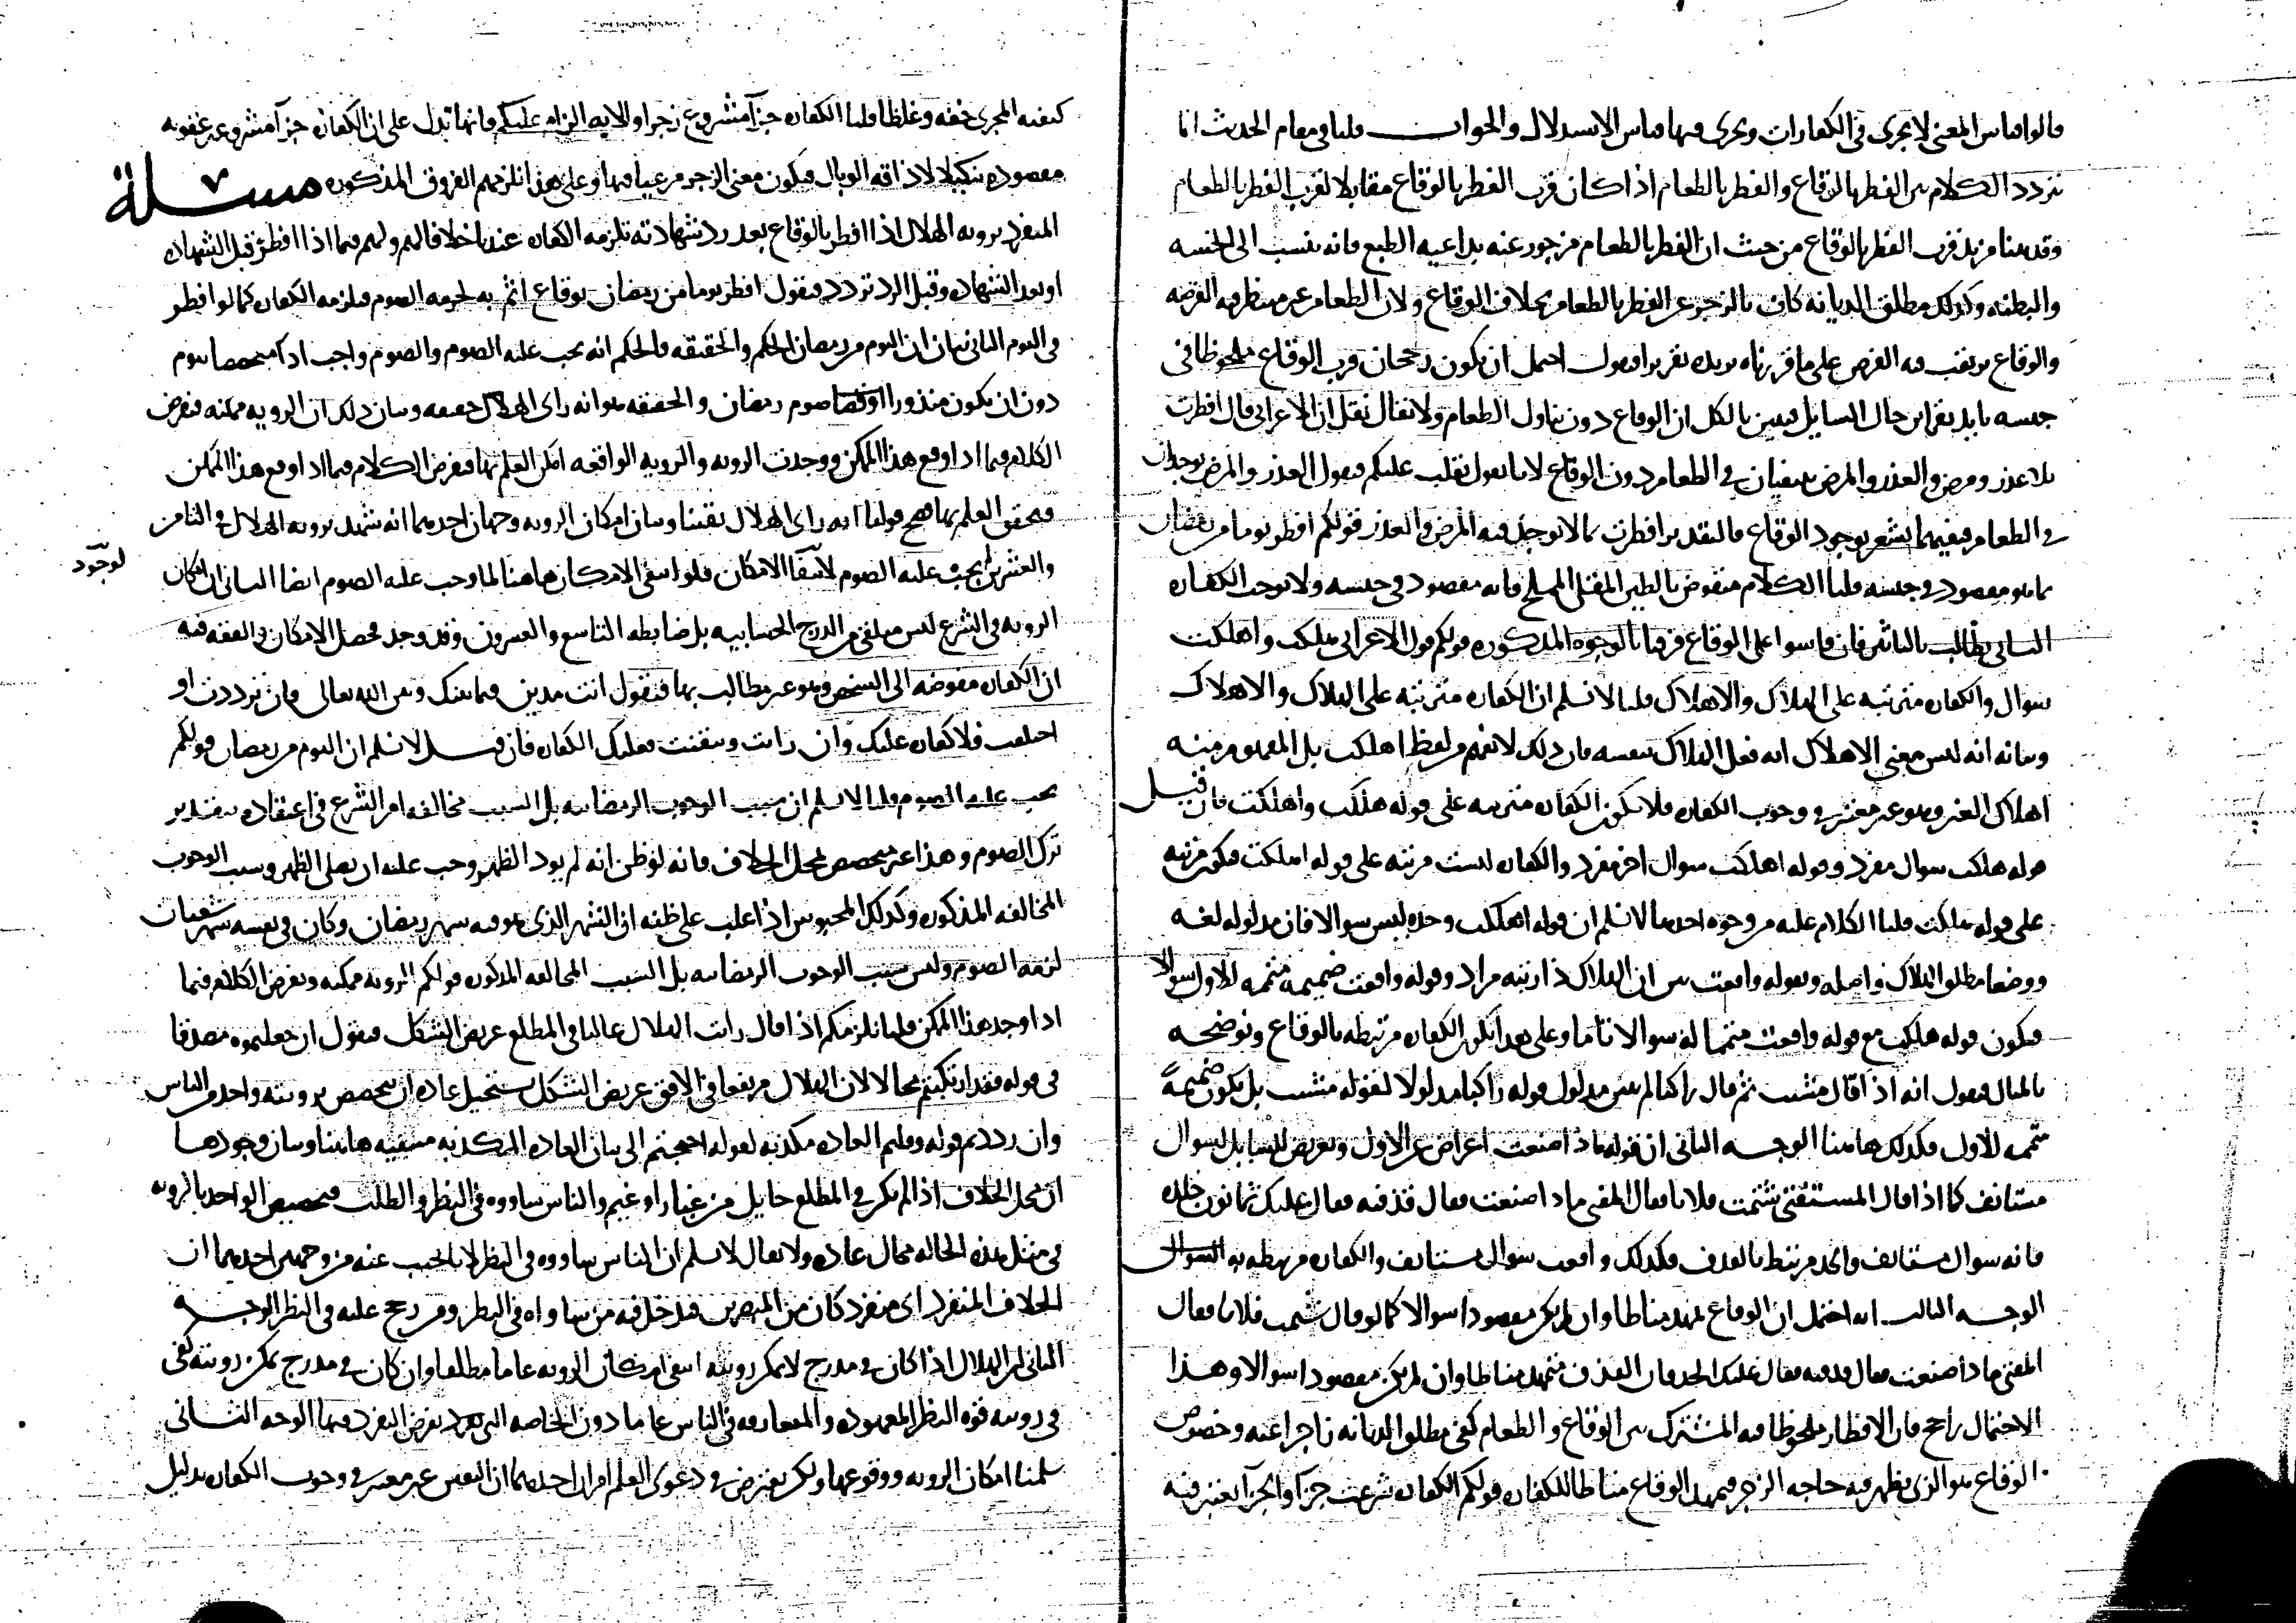 قالوا قياس المعنى لا يجرى في الكفارات ويجرى فيها قياس الاستدلال والجواب قلنا في مقام الحدث انا
نردد الكلام بين الفطر بالوقاع والفطر بالطعام اذا كان قرب الفطر بالوقاع مقابلا لقرب الفطر بالطعام
وقد بينا مزيد قرب الفطر بالوقاع من حيث ان الفطر بالطعام مزجور عنه بداعيه الطبع فانه ينسب الى الخسه
والبطنه وكذلك مطلق الديانه كاف بالزجر عن الفطر بالطعام بخلاف الوقاع ولان الطعام غير منتظر فيه الفرصه
والوقاع يرتقب فيه الفرص على ما قررناه يؤيده تقريرا فنقول احتمل ان يكون رجحان قرب الوقاع ملحوظا في
جنسه حال السايل فتبين بالكل ان الوقاع دون تناول الطعام ولا يقال نقل ان الاعرابى قال افطرت
بلا عذر ومرض والعذر والمرض ينفيان في الطعام دون الوقاع لانا نقول نقلب عليكم فنقول العذر والمرض يوجدان
في الطعام فنفيهما يشعر بوجود الوقاع فالتقدير افطرت بما لا يوجد فيه المرض والعذر قولكم افطر يوما من رمضان
بما هو مقصود في جنسه قلنا الكلام منقوض بالطين المقلى المملح فانه مقصود في جنسه ولا يوجب الكفاره
الثانى نطالب بالتاثير فان قاسوا على الوقاع فرقنا بالوجوه المذكوره قولكم قول الاعرابى هلكت واهلكت
سوال والكفاره مترتبه على الهلاك والاهلاك قلنا لا نسلم ان الكفاره مترتبه على الهلاك والاهلاك
وبيانه انه ليس معنى الاهلاك انه فعل الهلاك بنفسه فان ذلك لا يفهم من لفظ اهلكت بل المفهوم منه
اهلاك الغير وهو غير معتبر في وجوب الكفاره فلا تكون الكفاره مترتبه على قوله هلكت واهلكت فان قيل
قوله هلكت سوال مفرد وقوله اهلكت سوال اخر مفرد والكفاره ليست مرتبه على قوله اهلكت فتكون مرتبه
على قوله هلكت قلنا الكلام عليه من وجوه احدها لا نسلم ان قوله اهلكت وحده ليس سوالا فان مدلوله لغه
ووضعا مطلق الهلاك واصله وبقوله واقعت بين ان الهلاك ذا رتبه مراد وقوله واقعت ضميمه متممه للاول سوالا
فيكون قوله هلكت مع قوله واقعت متمما له سوالا تاما وعلى هذا تكون الكفاره مرتبطه بالوقاع ونوضحه
بالمثال فنقول انه اذا قال مشيت ثم قال راكبا لم يكن مدلول قوله راكبا مدلولا لقوله مشيت بل يكون ضميمةً
متممه للاول فكذلك هاهنا الوجه الثانى ان قوله ماذا صنعت اعراض عن الاول وتعريض للسايل لسوال
مستانف كما اذا قال المستفتى شتمت فلانا فقال المفتى ماذا صنعت فقال قذفته فقال عليك ثمانون جلده
فانه سوال مستانف والحد مرتبط بالقذف فكذلك واقعت سوال مستانف والكفاره مرتبطه به
الوجه الثالث انه احتمل ان الوقاع تمهد مناطا وان لم يكن مقصودا سوالا كما لو قال شتمت فلانا فقال
المفتى ماذا صنعت فقال قذفته فقال عليك الحد فان القذف متمهد مناطا وان لم يكن مقصودا سوالا وهذا
الاحتمال راجح فان الافطار ملحوظا فيه المشترك بين الوقاع والطعام كفى مطلق الديانه زاجرا عنه وخصوص
الوقاع هو الذى يظهر فيه حاجه الزجر فيمهد الوقاع مناطا للكفاره قولكم الكفاره شرعت جزآ والجزآ يعتبر فيه
كيفيه المجرى خفه وغلظا قلنا الكفاره جزآ مشروع زجرا والايه الزام عليكم فانها تدل على ان الكفاره جزآ مشروع غير عقوبه
مقصوده تنكيلا لاذاقه الوبال فيكون معنى الزجر مرعيا فيها وعلى هذا نلزمهم الفروق المذكوره مسئلة
المنفرد برويه الهلال اذا افطر بالوقاع بعد رد شهادته تلزمه الكفاره عندنا خلافا لهم ولهم فيما اذا افطر قبل الشهاده
او بعد الشهاده وقبل الرد تردد فنقول افطر يوما من رمضان بوقاع اثم به لحرمه الصوم فتلزمه الكفاره كما لو افطر
في اليوم الثانى بيان ان اليوم من رمضان الحكم والحقيقه فالحكم انه يجب عليه الصوم والصوم واجب اداء مختصا بيوم
دون ان يكون منذورا او قضا صوم رمضان والحقيقه هو انه راى الهلال حقيقه وبيان ذلك ان الرويه ممكنه فنفرض
الكلام فيما اذا وقع هذا الممكن ووجدت الرويه والرويه الواقعه امكن العلم بها فنفرض الكلام فيما اذا وقع هذا الممكن
وتحقق العلم بها صح قولنا انه راى الهلال يقينا وبيان امكان الرويه وجهان احدهما انه شهد برويه الهلال في الثامن
والعشرين لم يجب عليه الصوم لانتفا الامكان فلو انتفى الامكان هاهنا لما وجب عليه الصوم ايضا الثانى ان امكان
لوجود
الرويه في الشرع ليس متلقى من الدرج الحسابيه بل ضابطه التاسع والعشرون وقد وجد فحصل الامكان والفقه فيه
ان الكفاره مفوضه الى الشخص وهو غير مطالب بها فنقول انت مدين فيما بينك وبين الله تعالى فان ترددت او
اختلفت فلا كفاره عليك وان رايت وتيقنت فعليك الكفاره فان قيل لا نسلم ان اليوم من رمضان قولكم
يجب عليه الصوم قلنا لا نسلم ان سبب الوجوب الرمضانيه بل السبب مخالفه امر الشرع في اعتقاده بتقدير
ترك الصوم وهذا غير مختص بمحل الخلاف فانه لو ظن انه لم يود الظهر وجب عليه ان يصلى الظهر وسبب الوجوب
المخالفه المذكوره وكذلك المحبوس اذا غلب على ظنه ان الشهر الذى هو فيه شهر رمضان وكان في نفسه شهر شعبان
لزمه الصوم وليس سبب الوجوب الرمضانيه بل السبب المخالفه المذكوره قولكم الرويه ممكنه ونفرض الكلام فيما
اذا وجد هذا الممكن قلنا نلزمكم اذا قال رايت الهلال عاليا في المطلع عريض الشكل فنقول ان جعلتموه مصدقا
في قوله فقد ارتكبتم محالا لان الهلال مرتفعا في الافق عريض الشكل يستحيل عاده ان يختص برويته واحد من الناس
وان رددتم قوله وقلتم العاده مكذبه لقوله احتجتم الى بيان العاده المكذبه منتفيه هاهنا وبيان وجودها
ان محل الخلاف اذا لم يكن في المطلع حايل من غبار او غيم والناس ساووه في النظر والطلب فتخصيص الواحد بالرويه
في مثل هذه الحاله محال عاده ولا يقال لا نسلم ان الناس ساووه في النظر لانا نجيب عنه من وجهين احدهما ان
الخلاف المنفرد اى منفرد كان من المبصرين فدخل فيه من ساواه في النظر ومن رجح عليه في النظر الوجه
الثانى ان الهلال اذا كان في مدرج لا يمكن رويته انتفى امكان الرويه عاما مطلقا وان كان في مدرج يمكن رويته كفى
في رويته قوه النظر المعهوده والمتعارفه في الناس عاما دون الخاصه التى نفرض التفرد فيها الوجه الثانى
سلمنا امكان الرويه ووقوعها ولكن نعترض في دعوى العلم امران احدهما ان اليقين غير معتبر في وجوب الكفاره بدليل